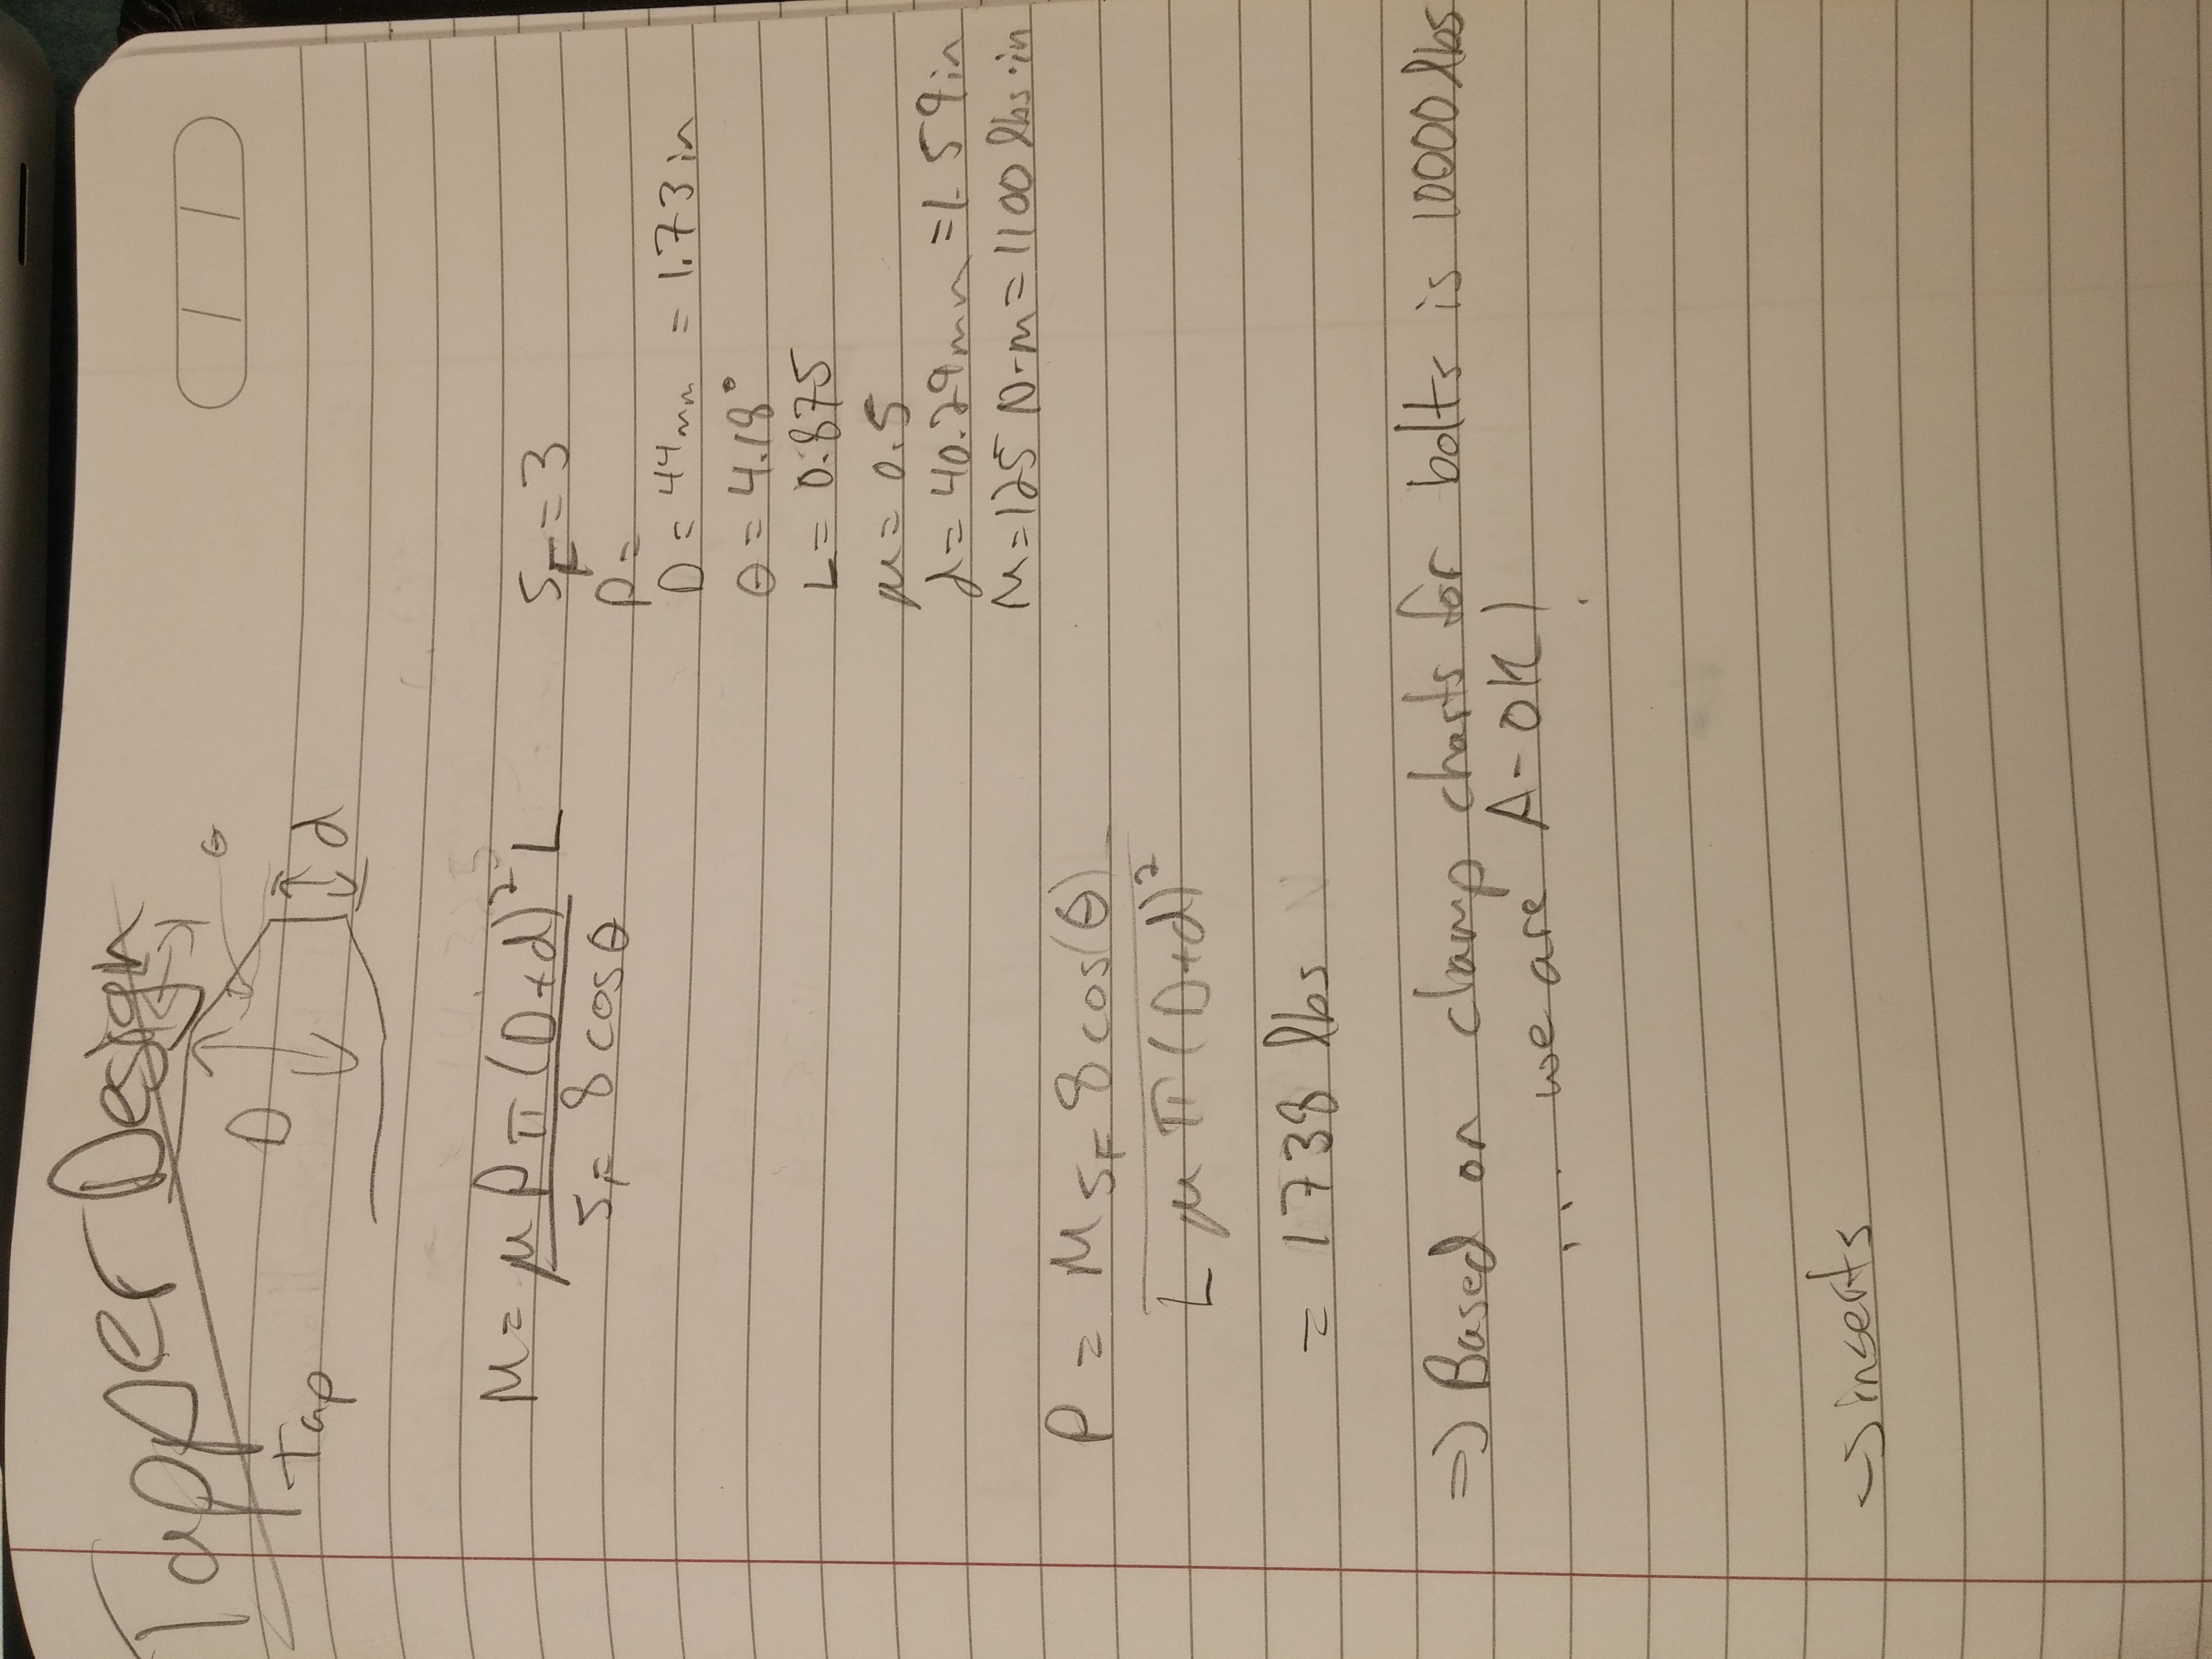 Tapper Design
θ
D
Tap
d
M = μ P π (D+d)² L / S_F 8 cos θ
S_F = 3
P =
D = 44mm = 1.73 in
θ = 4.18°
L = 0.875
μ = 0.5
d = 40.29mm = 1.59 in
M = 125 N-m = 1100 lbs·in
P = M S_F 8 cos(θ) / L μ π (D+d)²
= 1738 lbs
=> Based on clamp charts for bolts is 10000 lbs
... we are A-OK!
→ inserts